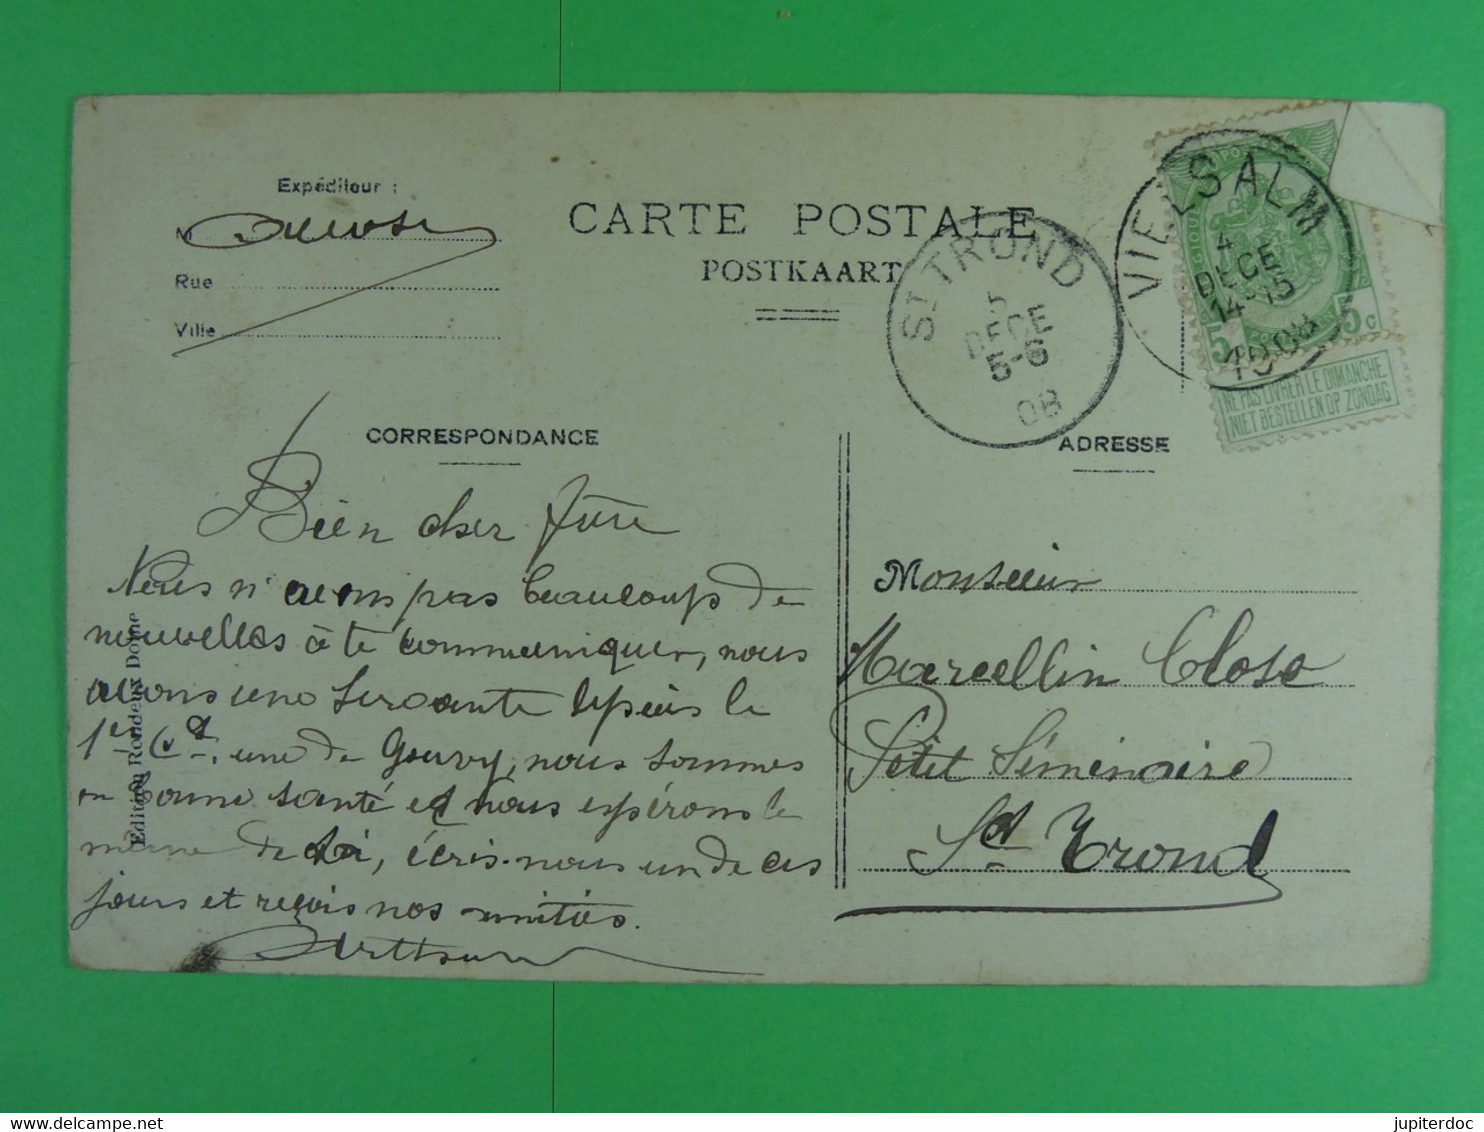 Expéditeur :
N
Rue
Ville
CARTE POSTALE
POSTKAART
ST TROND
5
DECE
5-6
08
VIELSALM
4
DECE
14-15
1908
5
5 c
NE PAS LIVRER LE DIMANCHE
NIET BESTELLEN OP ZONDAG
CORRESPONDANCE
Bien cher frère
Nous n'avons pas beaucoups de
nouvelles à te communiquer, nous
avons une servante depuis le
1er Ct, une de Gouvy, nous sommes
en bonne santé et nous espérons le
même de toi, écris-nous un de ces
jours et reçois nos amitiés.
Arthur
Edition Rondeux Doime
ADRESSE
Monsieur
Marcellin Close
Petit Séminaire
St Trond
jupiterdoc